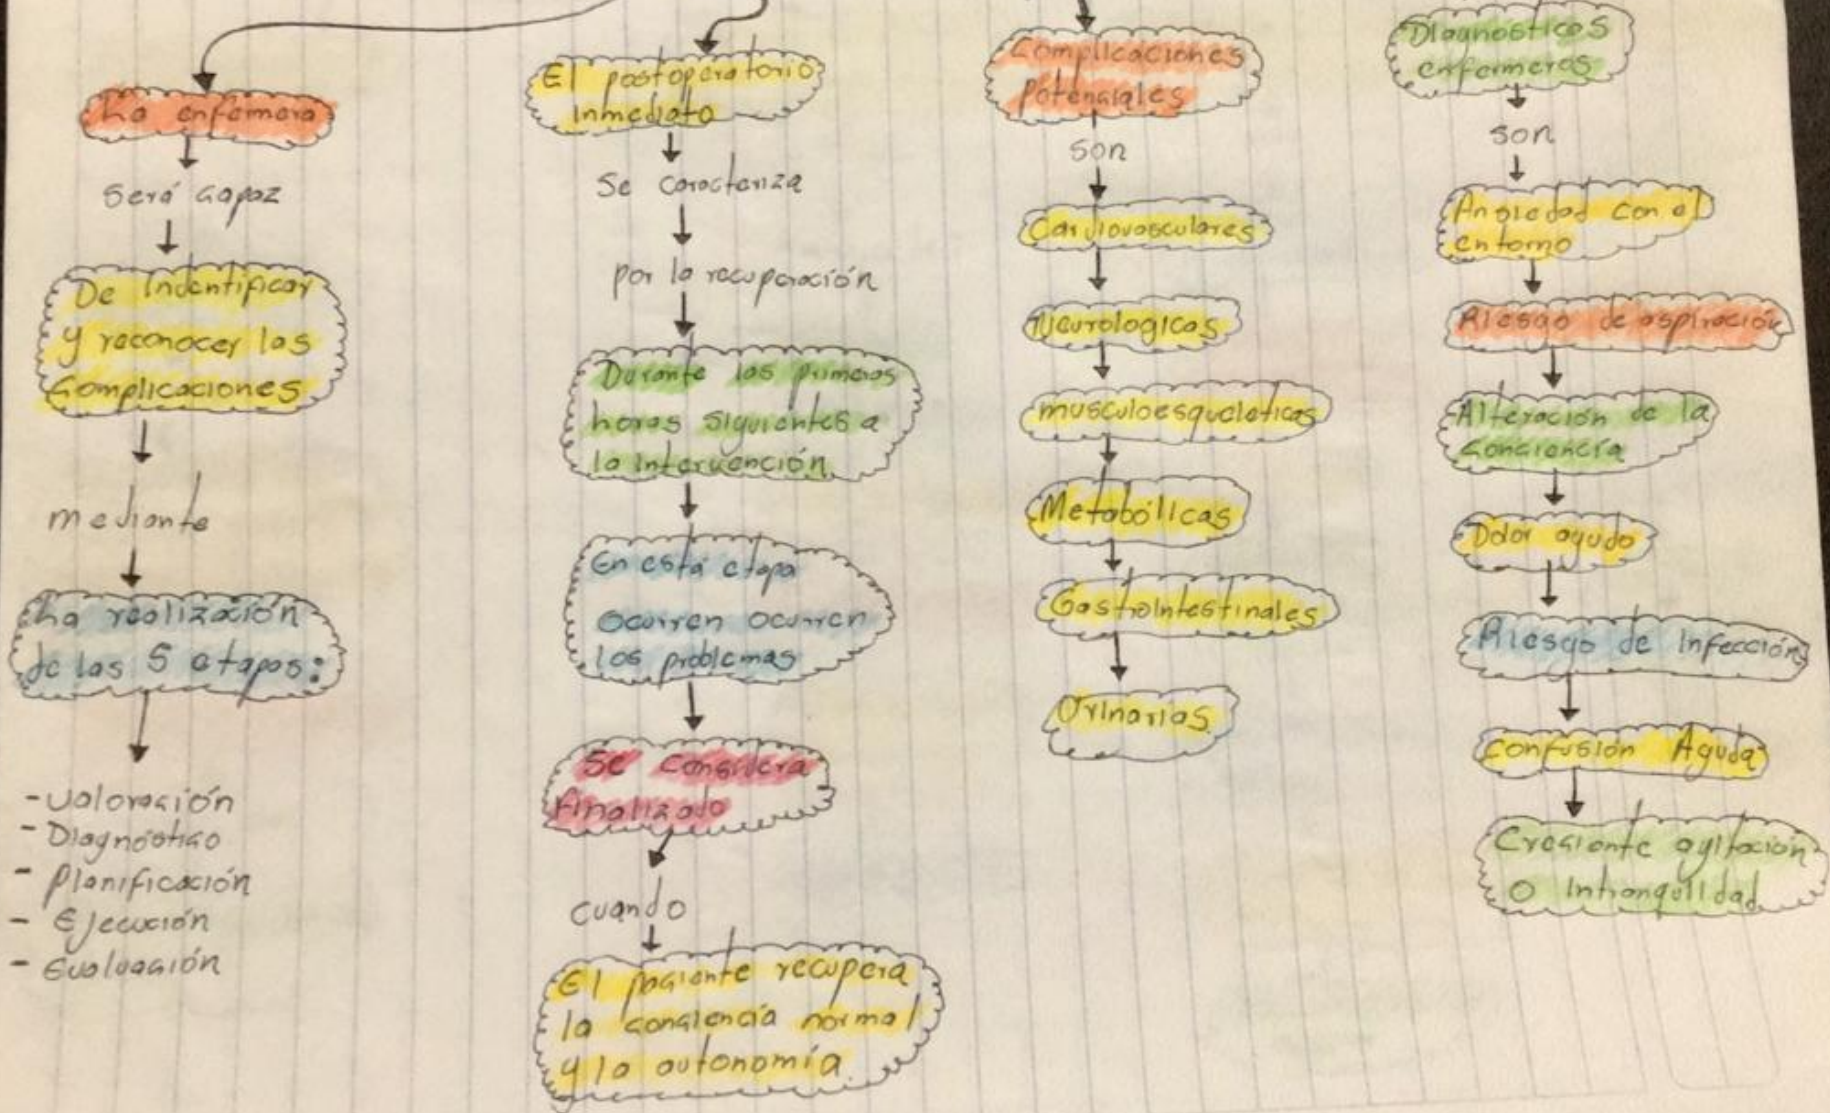 La enfermera
será capaz
De Indentificar
y reconocer las
Complicaciones
mediante
La realización
de las 5 etapas:
- Valoración
- Diagnóstico
- Planificación
- Ejecución
- Evaluación
El postoperatorio
inmediato
Se caracteriza
por la recuperación
Durante las primeras
horas siguientes a
la Intervención
En está etapa
ocurren ocurren
los problemas
Se considera
finalizado
cuando
El paciente recupera
la conciencia normal
y la autonomía.
Complicaciones
Potenciales
son
Cardiovasculares
Neurologicas
musculoesqueleticas
Metabólicas
Gastrointestinales
Urinarias
Diagnósticos
enfermeros
son
Ansiedad con el
entorno
Riesgo de aspiración
Alteración de la
Conciencia
Dolor agudo
Riesgo de Infección
Confusión Aguda
Creciente agitación
o Intranquilidad